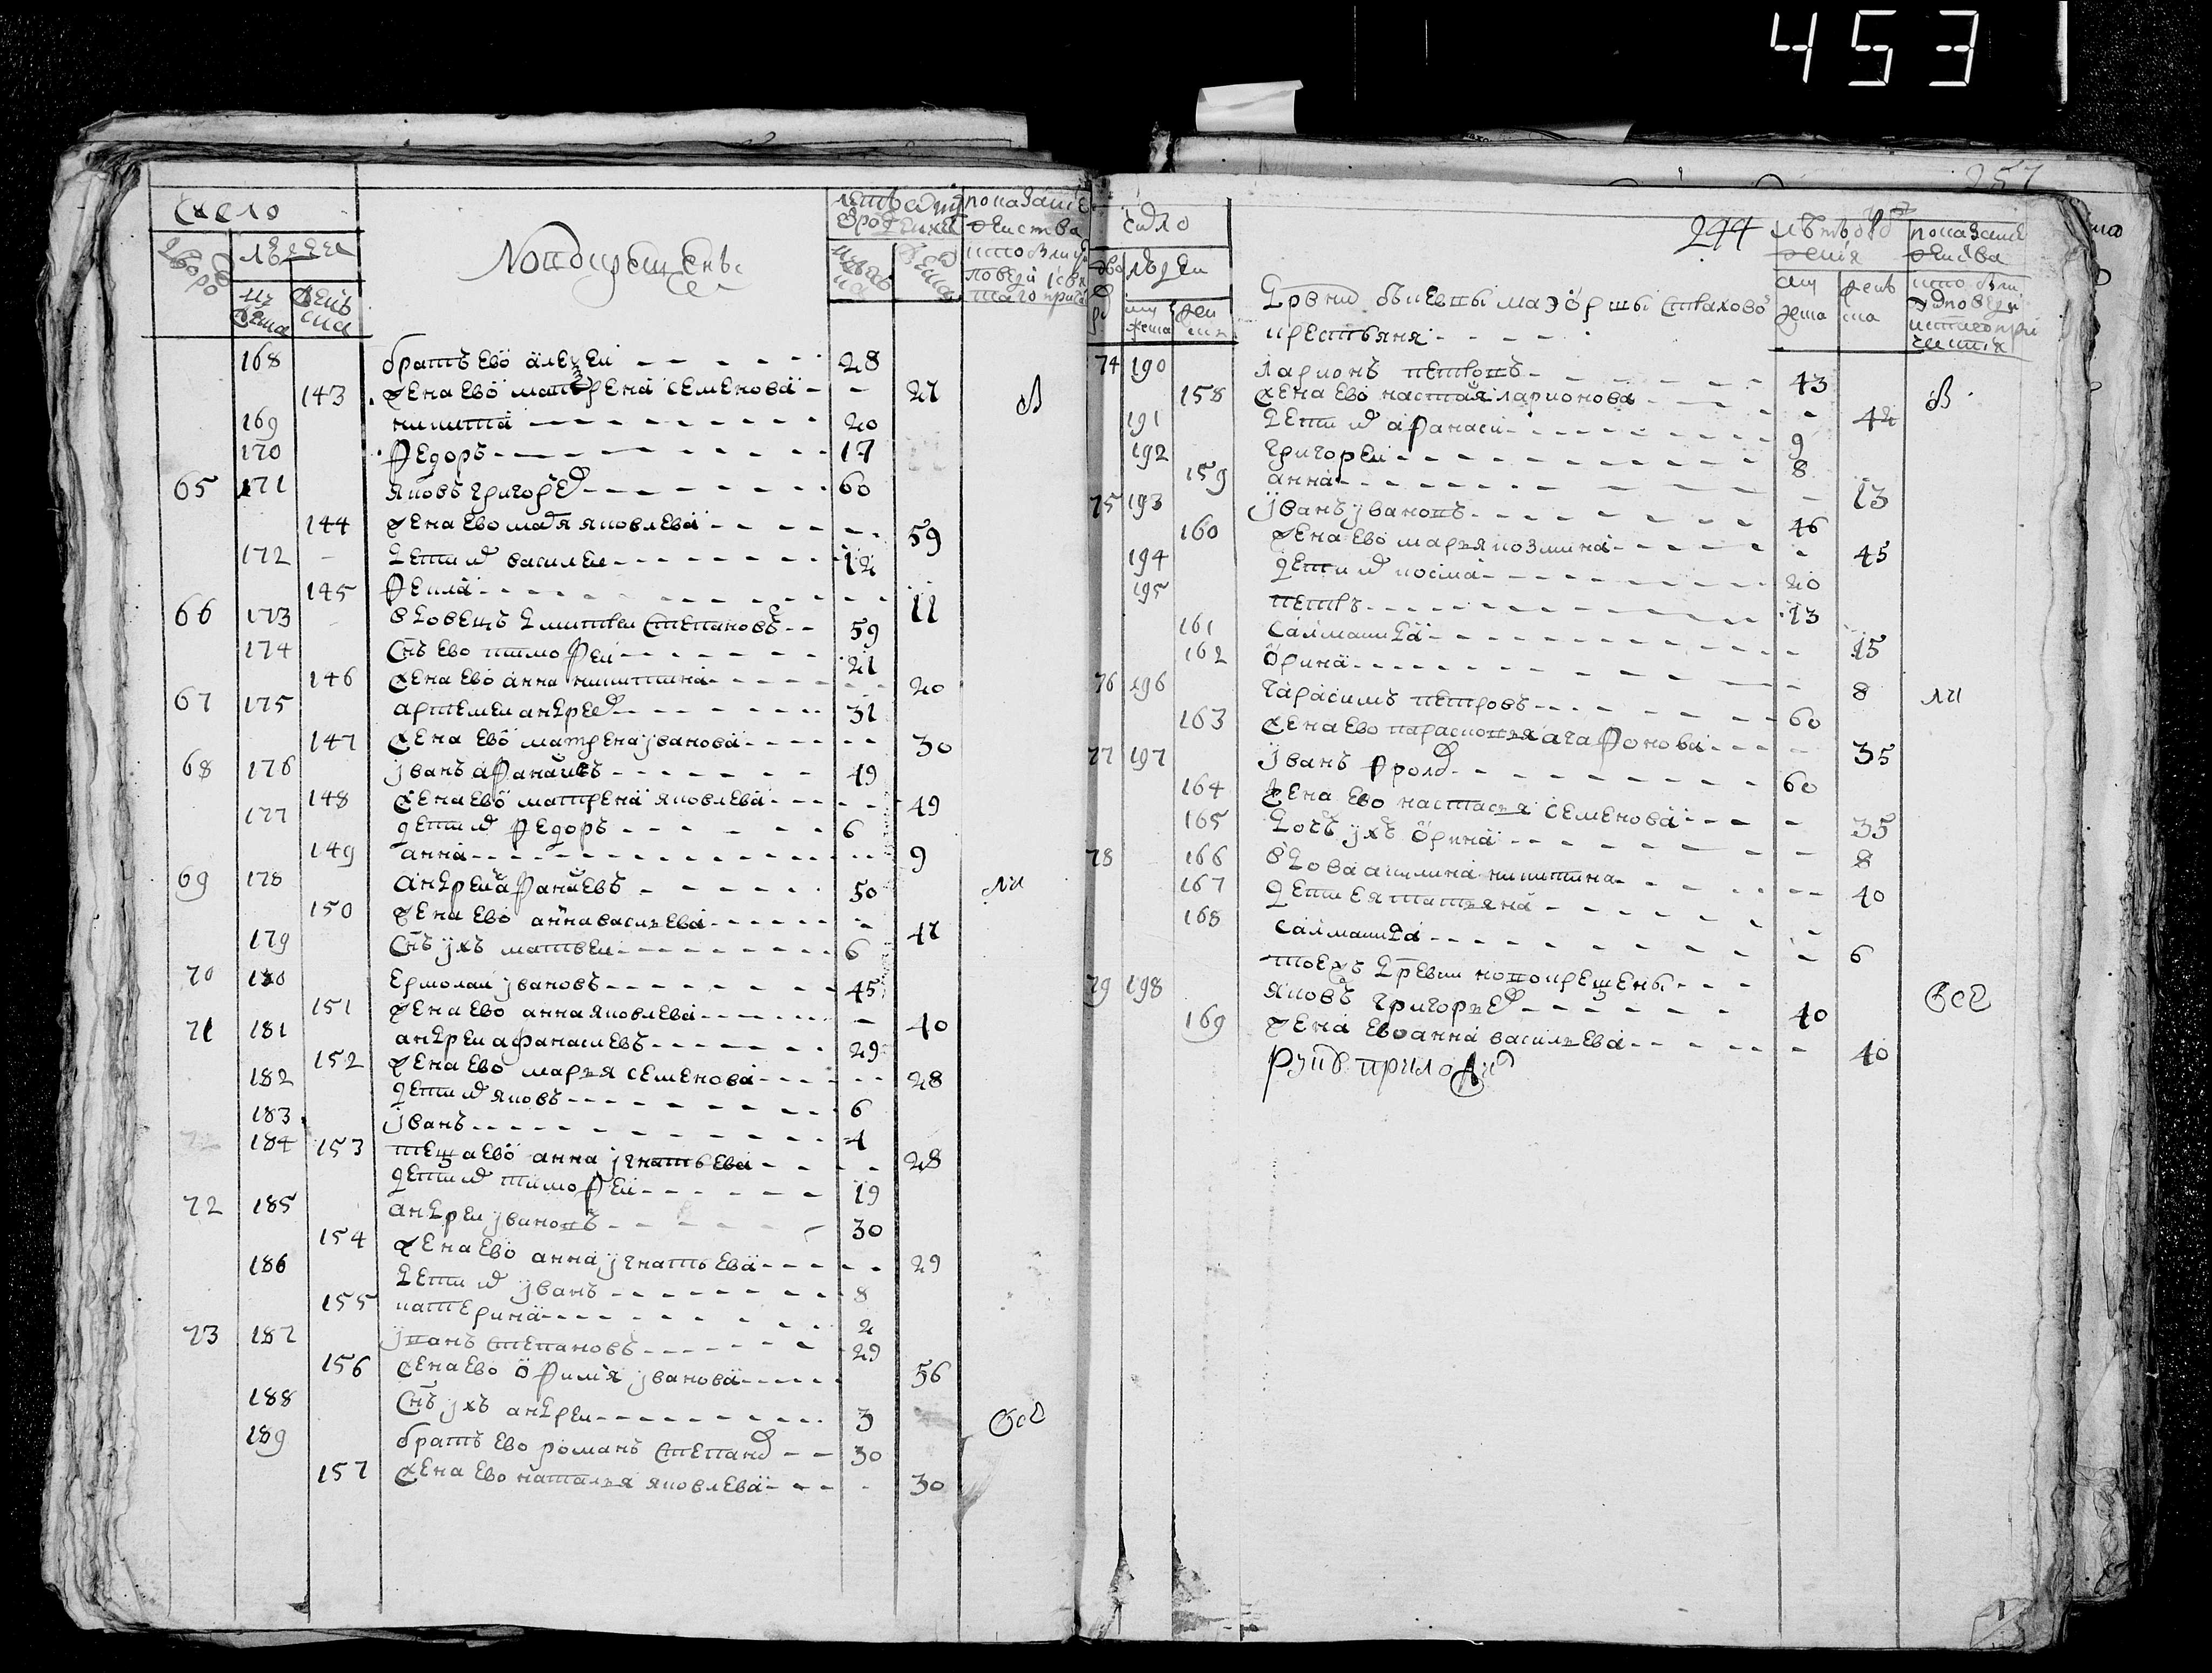 453
Число
Новокрещены
лѣтъ от рожденiя
показание действа
дворов
людей
мужеска
женска
168 братъ ево алеѯеи 28
143 жена ево матрена семенова 27 в
169 никита 20
170 Федоръ 17
65 171 яковъ григорев 60
144 жена ево маря яковлева 59
172 дети их василеи 12
145 Фекла 11
66 173 вдовецъ дмитреи степановъ 59
174 Снъ ево тимоѳеи 21
146 жена ево анна никитина 20
67 175 артемеи андреев 31
147 жена ево матрена jванова 30
68 176 jванъ афанасевъ 49
148 жена ево матрена яковлева 49
177 дети их Федоръ 6
149 анна 9
69 178 андреи афанасевъ 50 ли
150 жена ево анна васильева 47
179 Снъ jхъ матвеи 6
70 180 ермолаи jвановъ 45
151 жена ево анна яковлева 40
71 181 андреи афанасиевъ 29
152 жена ево марья семенова 28
182 дети их яковъ 6
183 jванъ 4
184 153 теща ево анна jгнатьева 28
дети их тимофеи 19
72 185 андреи jвановъ 30
154 жена ево анна jгнатьева 29
186 дети их jванъ 8
155 катерина 2
73 187 jванъ степановъ 29
156 жена ево офимія jванова 56
188 Снъ jхъ андреи 3
189 братъ ево романъ степанов 30
157 жена ево наталья яковлева 30
257
244
число
людеи
мужеска
женска
показание действа
маэорши Страховои
крестьяня
74 190 ларионъ петровъ 43 в
158 жена ево настася ларионова 42
191 дети их афанасеи 9
192 григореи 8
159 анна 13
75 193 jванъ jвановъ 46
160 жена ево марья козмина 45
194 дети их косма 20
195 петръ 13
161 Саломанида 15
162 орина 8
76 196 гарасимъ петровъ 60 ли
163 жена ево парасковья агафонова 35
77 197 jванъ фролов 60
164 жена ево настасья семенова 35
165 дочь jхъ орина 8
78 166 вдова акилина никитина 40
167 дети ея татьяна
168 Саломанида 6
тоежъ древни новокрещены
79 198 яковъ григорьев 40
169 жена ево анна васильева 40
руку приложил